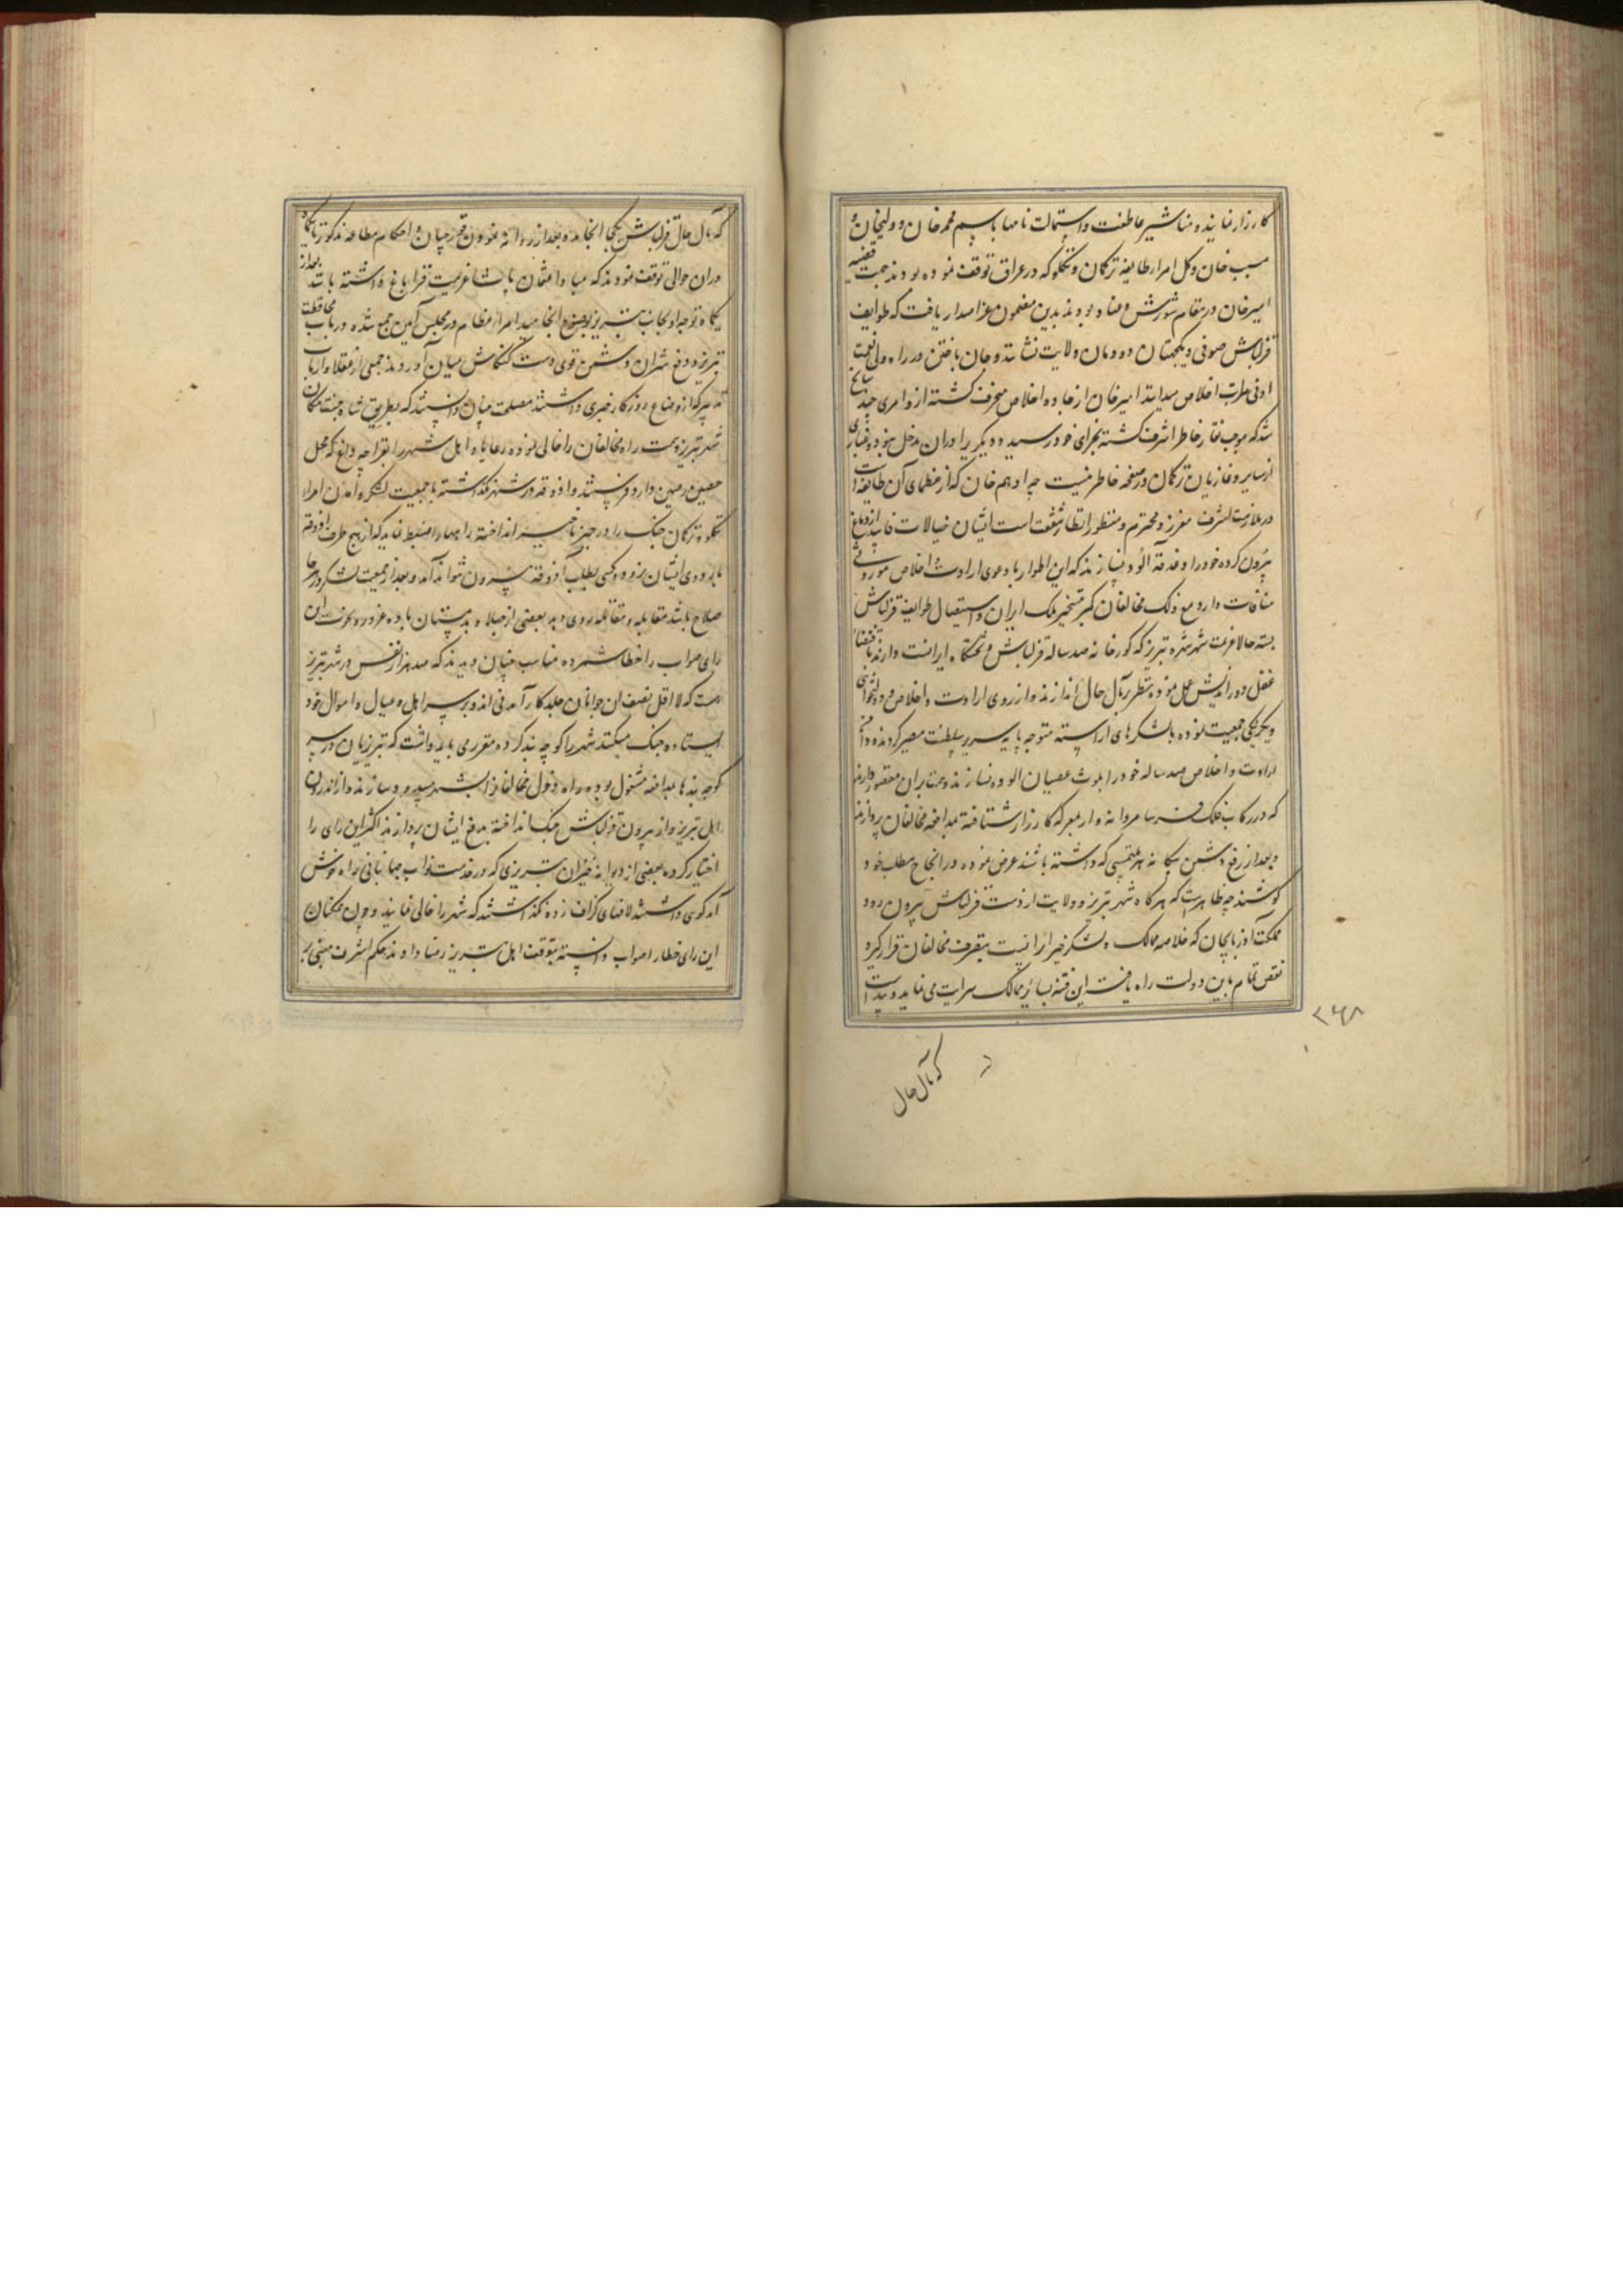 کارزار نمایند و مناشیر عاطفت و استمالت نامها باسم محمد خان و ولیخان و
مسیب خان و کل امراء طایفه ترکمان و تکلو که در عراق توقف نموده بودند جهت قضیه
امیرخان در مقام شورش و عناد بودند بدین مضمون عز اصدار یافت که طوایف
قزلباش صوفی و یکجهتان دودمان ولایت نشانند و جان باختن در راه ولی نعمت
ادنی مراتب اخلاص میدانند امیرخان از جاده اخلاص منحرف گشته ازو امری چند سانح
شد که موجب نقار خاطر اشرف گشته بجزای خود رسید و دیگریرا در آن مدخل نبوده غباری
از سایر و غازیان ترکمان در صفحه خاطر نیست چه ادهم خان که از عظمای آن طایفه است
در ملازمت اشرف معزز و محترم و منظور انظار شفقت است ایشان خیالات فاسد از دماغ
بیرون کرده خود را دغدغه آلود نسازند که این اطوار با دعوی ارادت و اخلاص موروثی
منافات دارد مع ذلک مخالفان کمر تسخیر ملک ایران و استیصال طوایف قزلباش
بسته حالا عزیمت شهر شهره تبریز که گورخانه صد ساله قزلباش و تختگاه ایرانست دارند باقتضاء
عقل دوراندیش عمل نموده نظر بر مآل حال اندازند و از روی ارادت و اخلاص و دولتخواهی
و یکرنگی جمعیت نموده با لشکرهای آراسته متوجه پایه سریر سلطنت مصیر گردند و دامن
ارادت و اخلاص صد ساله خود را بلوث عصیان آلوده نسازند و همت بر آن مقصور دارند
که در رکاب فلک فرسا مردانه وار بمعرکه کارزار شتافته بمدافعه مخالفان پردازند
و بعد از رفع دشمن بیگانه هر ملتمسی که داشته باشند عرض نموده در انجاح مطلب خود
کوشند چه ظاهرست که هرگاه شهر تبریز و ولایت از دست قزلباش بیرون رود
مملکت آذربایجان که خلاصه ممالک و لشکرخیز ایرانست بتصرف مخالفان قرار گیرد
نقص تمام باین دولت راه یافته این فتنه بسایر ممالک سرایت می نماید و پیداست
۲۶۸
که مآل حال
که مآل حال قزلباش بکجا انجامد و بعد از روانه نمودن قورچیان و احکام مطاعه مذکور تا یکماه
در آن حوالی توقف نمودند که مبادا عثمان پاشا عزیمت قراباغ داشته باشد بعد از
یکماه توجه او بجانب تبریز بوضوح انجامید امراء عظام در مجلس آئین جمع شده در باب محافظت
تبریز و دفع شر آن دشمن قوی دست کنکاش میان آوردند جمعی از عقلا و ارباب
تدبیر که از اوضاع روزگار خبری داشتند مصلحت چنان دانستند که بطریق شاه جنت مکان
شهر تبریز و سمت راه مخالفان را خالی نموده رعایا و اهل شهر را بقراجه داغ که محل
حصین رصین دارد فرستند و آذوقه در شهر نگذاشته با جمعیت لشکر و آمدن امراء
تکلو و ترکمان جنگ را در حیز تاخیر انداخته راهها را مضبط نمایند که از هیچ طرف آذوقه
باردوی ایشان نرود و کسی بطلب آذوقه بیرون نتواند آمد و بعد از جمعیت لشکر در هر جا
صلاح باشد مقابله و مقاتله روی دهد بعضی از جهلا و بدمستان باده غرور و نخوت این
رای صواب را خطا شمرده مناسب چنان دیدند که صد هزار نفس در شهر تبریز
هست که لا اقل نصف آن جوانان جلد کارآمدنی اند و بر سر اهل و عیال و اموال خود
ایستاده جنگ میکنند شهر را کوچه بند کرده مقرر می باید داشت که تبریزیان در سر
کوچه بندها بمدافعه مشغول بوده راه دخول مخالفانرا بشهر مسدود سازند و از اندرون
اهل تبریز و از بیرون قزلباش جنگ انداخته بدفع ایشان پردازند اکثر این رای را
اختیار کرده بعضی از دیوانه خیزان تبریزی که در خدمت نواب جهانبانی راه خوش
آمدگوی داشتند لافهای گزاف زده نگذاشتند که شهر را خالی نمایند و چون همگنان
این رای خطا را صواب دانسته بتوقف اهل تبریز رضا دادند حکم اشرف مبنی بر